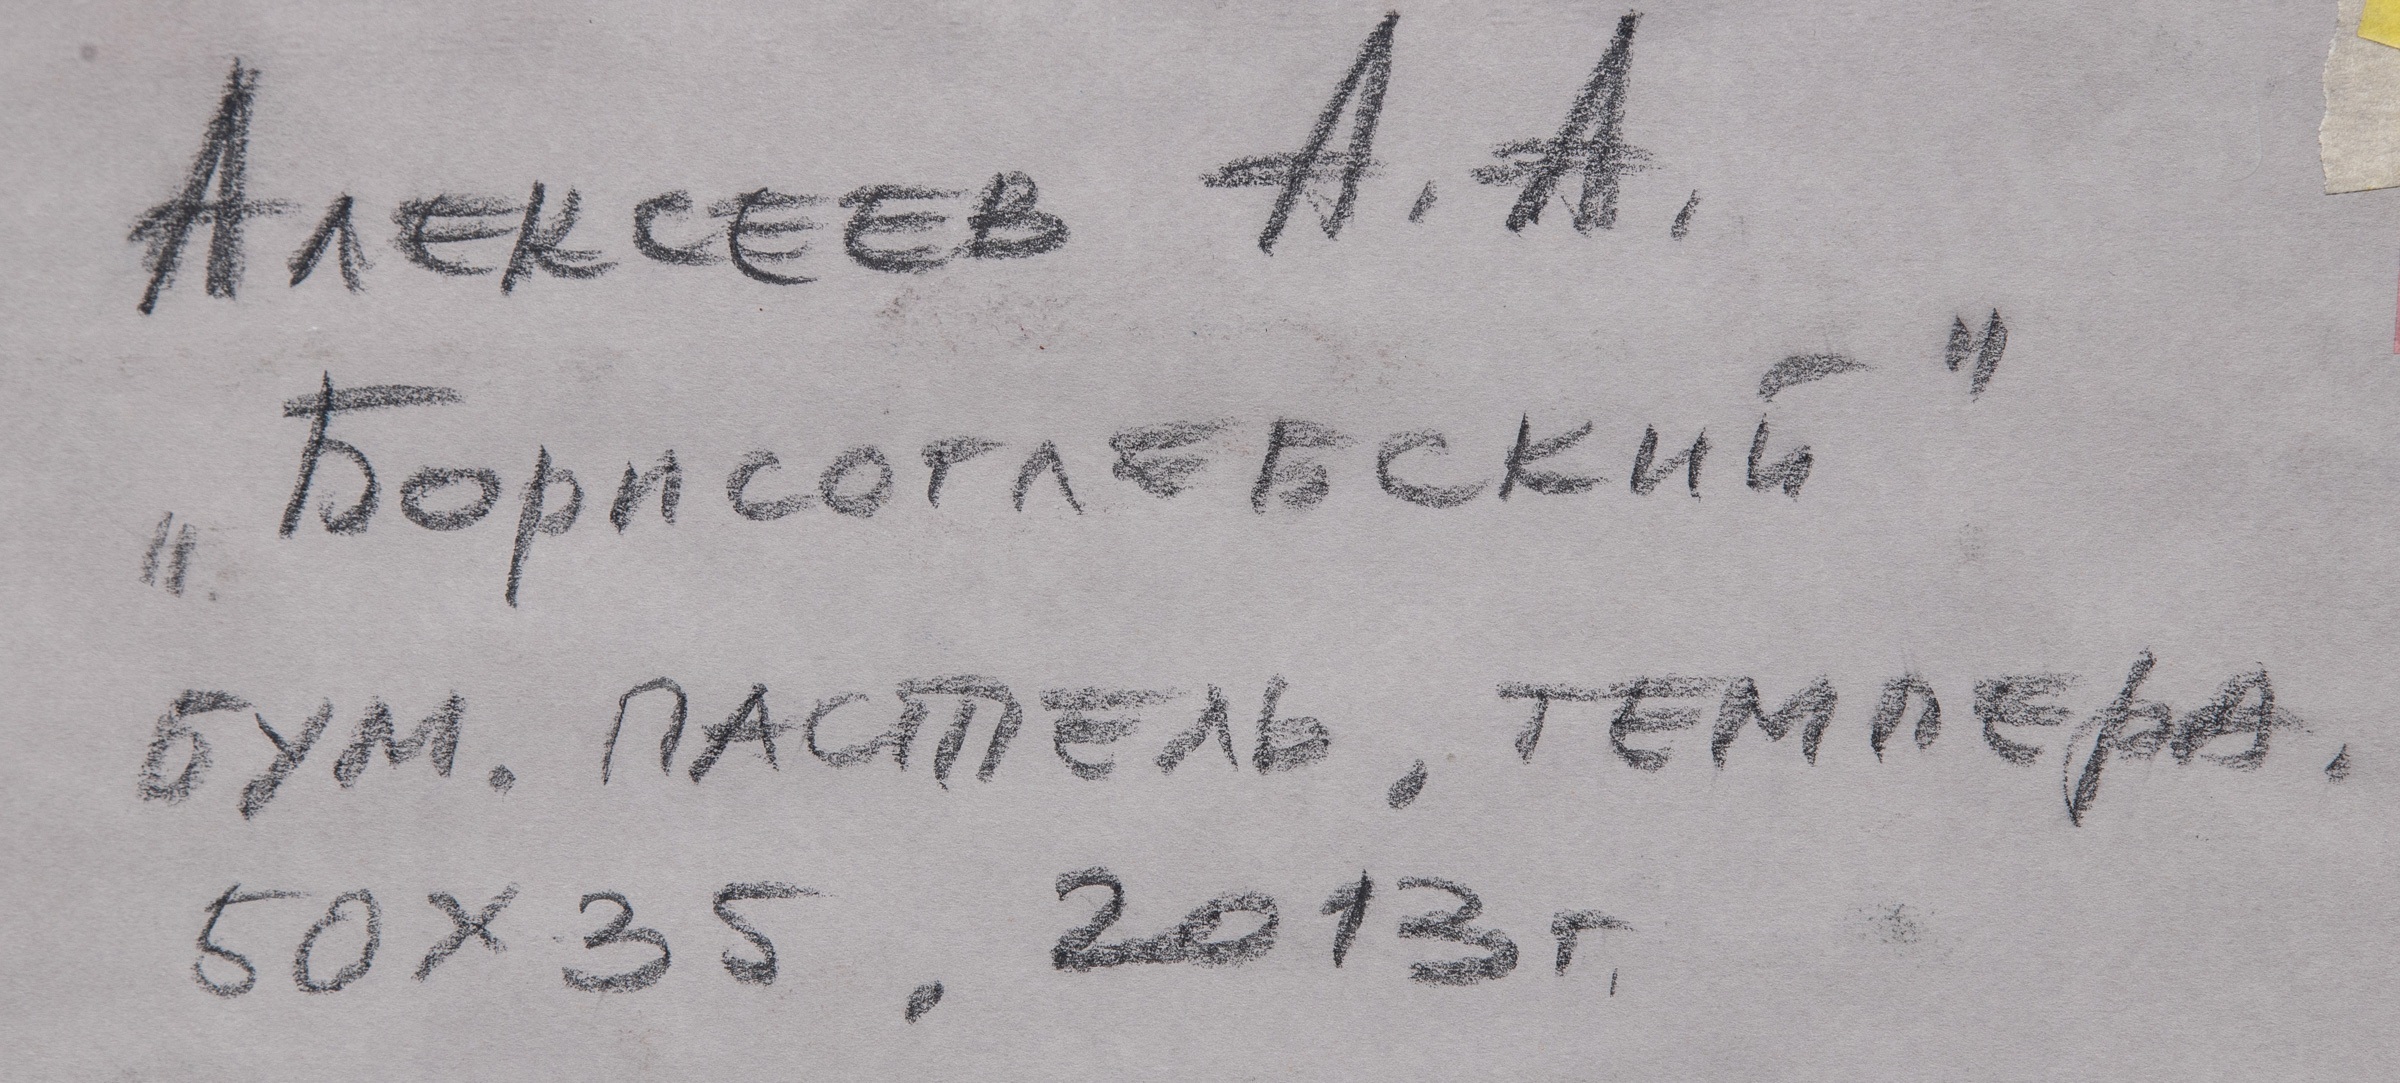 Алексеев А.А.
„Борисоглебский"
бум. пастель, темпера.
50х35, 2013г.